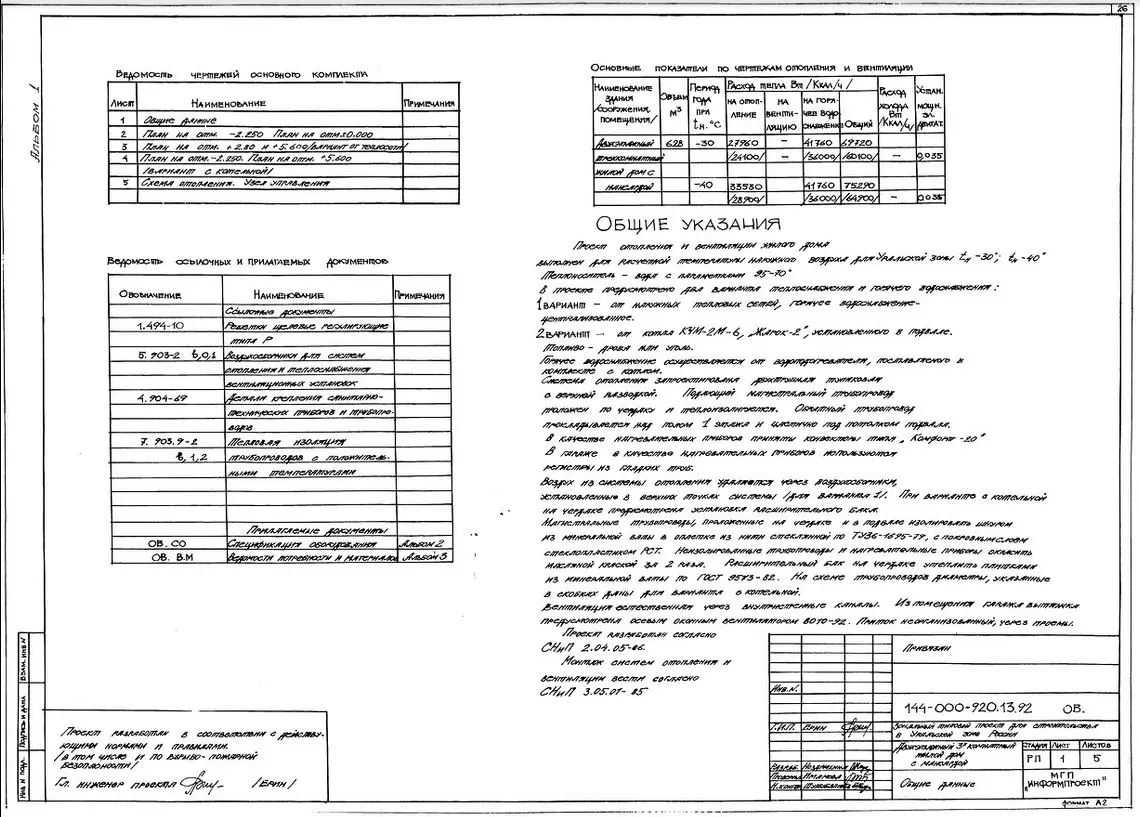 26
Альбом 1
Ведомость чертежей основного комплекта
Лист Наименование Примечания
1 Общие данные
2 План на отм. -2.250 План на отм. ±0.000
3 План на отм. +2.80 и +5.600 /вариант от теплосети/
4 План на отм. -2.250. План на отм. +5.600
/вариант с котельной/
5 Схема отопления. Узел управления
Ведомость ссылочных и прилагаемых документов
Обозначение Наименование Примечания
Ссылочные документы
1.494-10 Решетки щелевые регулирующие
типа Р
5.903-2 в,0,1 Воздухосборники для систем
отопления и теплоснабжения
вентиляционных установок
4.904-69 Детали крепления санитарно-
технических приборов и трубопро-
водов
7.903.9-2 Тепловая изоляция
в,1,2 трубопроводов с положитель-
ными температурами
Прилагаемые документы
ОВ.СО Спецификация оборудования Альбом 2
ОВ.ВМ Ведомости потребности и материалов Альбом 3
Основные показатели по чертежам отопления и вентиляции
Наименование здания /сооружения, помещения/ Объем м³ Период года при tн.°С Расход тепла Вт /Ккал/ч/ Расход холода Вт /Ккал/ч/ Устан. мощн. эл. двигат.
на отоп-ление на венти-ляцию на горя-чее водо-снабжение Общий
Двухэтажный 628 -30 27960 – 41760 69720
трехкомнатный /24100/ – /36000/ /60100/ – 0.035
жилой дом с
мансардой -40 33530 41760 75290
/28900/ /36000/ /64900/ – 0.035
Общие указания
Проект отопления и вентиляции жилого дома
выполнен для расчетной температуры наружного воздуха для Уральской зоны tн-30°; tн-40°
Теплоноситель – вода с параметрами 95-70°
В проекте предусмотрено два варианта теплоснабжения и горячего водоснабжения:
1 вариант – от наружных тепловых сетей, горячее водоснабжение-
централизованное.
2 вариант – от котла КЧМ-2М-6, „Жарок-2", установленного в подвале.
Топливо – дрова или уголь.
Горячее водоснабжение осуществляется от водоподогревателя, поставляемого в
комплекте с котлом.
Система отопления запроектирована двухтрубная тупиковая
с верхней разводкой. Подающий магистральный трубопровод
проложен по чердаку и теплоизолируется. Обратный трубопровод
прокладывается над полом 1 этажа и частично под потолком подвала.
В качестве нагревательных приборов приняты конвекторы типа „Комфорт-20"
В гараже в качестве нагревательных приборов используются
регистры из гладких труб.
Воздух из системы отопления удаляется через воздухосборники,
установленные в верхних точках системы /для варианта 1/. При варианте с котельной
на чердаке предусмотрена установка расширительного бака.
Магистральные трубопроводы, проложенные на чердаке и в подвале изолировать шнуром
из минеральной ваты в оплетке из нити стеклянной по ТУ36-1695-79, с покровным слоем
стеклопластиком РСТ. Неизолированные трубопроводы и нагревательные приборы окрасить
масляной краской за 2 раза. Расширительный бак на чердаке утеплить плитками
из минеральной ваты по ГОСТ 9573-82. На схеме трубопроводов диаметры, указанные
в скобках даны для варианта с котельной.
Вентиляция естественная через внутристенные каналы. Из помещения гаража вытяжка
предусмотрена осевым оконным вентилятором ВОТО-92. Приток неорганизованный, через проемы.
Проект разработан согласно
СНиП 2.04.05-86.
Монтаж систем отопления и
вентиляции вести согласно
СНиП 3.05.01-85
Проект разработан в соответствии с действу-
ющими нормами и правилами.
/в том числе и по взрыво-пожарной
безопасности/
Гл. инженер проекта /Ерин/
Взам. инв N
Подпись и дата
Инв. N подл.
Привязан
Инв. N.
144-000-920.13.92 ОВ.
Г.И.П. Ерин
Зональный типовой проект для строительства
в Уральской зоне России
Двухэтажный 3х комнатный
жилой дом
с мансардой
Стадия Лист Листов
РП 1 5
Разраб.
Н.контр
Общие данные
МГП
„Информпроект"
Формат А2